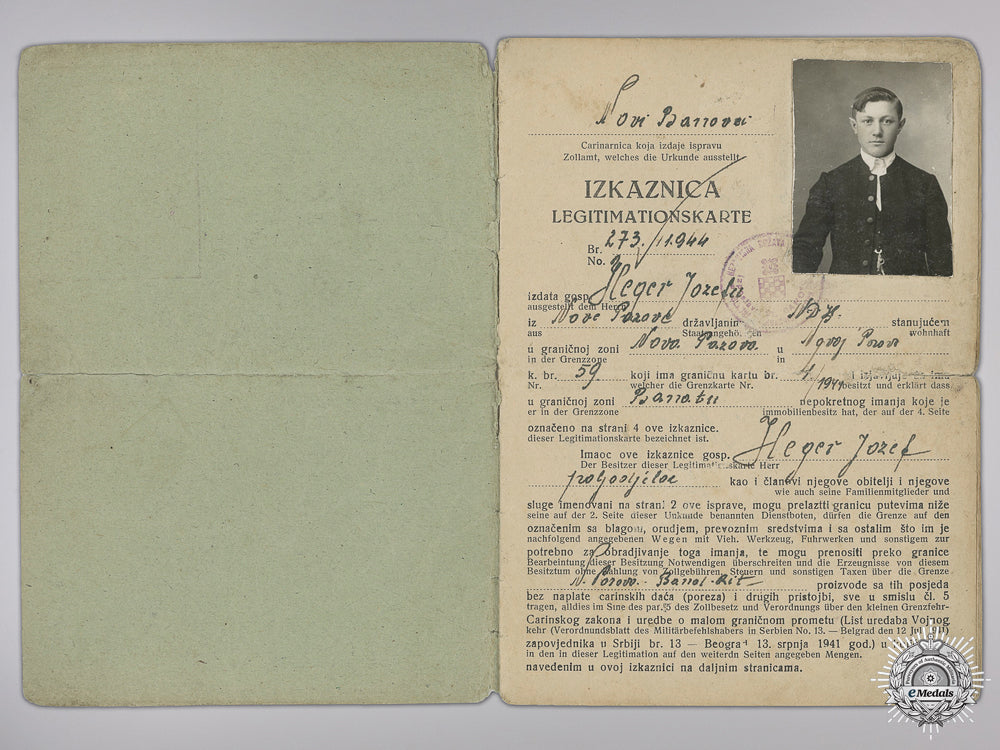 Novi Banovci
Carinarnica koja izdaje ispravu
Zollamt, welches die Urkunde ausstellt
IZKAZNICA
LEGITIMATIONSKARTE
Br. 273/1944
No.
izdata gosp. Heger Jozefu
ausgestellt dem Herrn
iz Nove Pazove državljanin NDH. stanujućem
aus Staatsangehö. gen wohnhaft
u graničnoj zoni Nova Pazova u Novoj Pazovi
in der Grenzzone in
k. br. 59 koji ima graničnu kartu br. 4/1944 i izjavljuje da ima
Nr. welcher die Grenzkarte Nr. besitzt und erklärt dass
u graničnoj zoni Banatu nepokretnog imanja koje je
er in der Grenzzone immobilienbesitz hat, der auf der 4. Seite
označeno na strani 4 ove izkaznice.
dieser Legitimationskarte bezeichnet ist.
Imaoc ove izkaznice gosp. Heger Jozef
Der Besitzer dieser Legitimationskarte Herr
poljodjelac kao i članovi njegove obitelji i njegove
wie auch seine Familienmitglieder und
sluge imenovani na strani 2 ove isprave, mogu prelaziti granicu putevima niže
seine auf der 2. Seite dieser Urkunde benannten Dienstboten, dürfen die Grenze auf den
označenim sa blagom, orudjem, prevoznim sredstvima i sa ostalim što im je
nachfolgend angegebenen Wegen mit Vieh, Werkzeug, Fuhrwerken und sonstigem zur
potrebno za obradjivanje toga imanja, te mogu prenositi preko granice
Bearbeitung dieser Besitzung Notwendigen überschreiten und die Erzeugnisse von diesem
Besitztum ohne Zahlung von Zollgebühren, Steuern und sonstigen Taxen über die Grenze
N. Pazova - Banat - Rit proizvode sa tih posjeda
bez naplate carinskih daća (poreza) i drugih pristojbi, sve u smislu čl. 5
tragen, alldies im Sine des par. 5 des Zollbesetz und Verordnungs über den kleinen Grenzfehr-
Carinskog zakona i uredbe o malom graničnom prometu (List uredaba Vojnog
kehr (Verordnungsblatt des Militärbefehlshabers in Serbien No. 13. — Belgrad den 12 Juli 1941)
zapovjednika u Srbiji br. 13 — Beograd 13. srpnja 1941 god.) u
in den in dieser Legitimation auf den weiterdn Seiten angegeben Mengen.
navedenim u ovoj izkaznici na daljnim stranicama.
eMedals